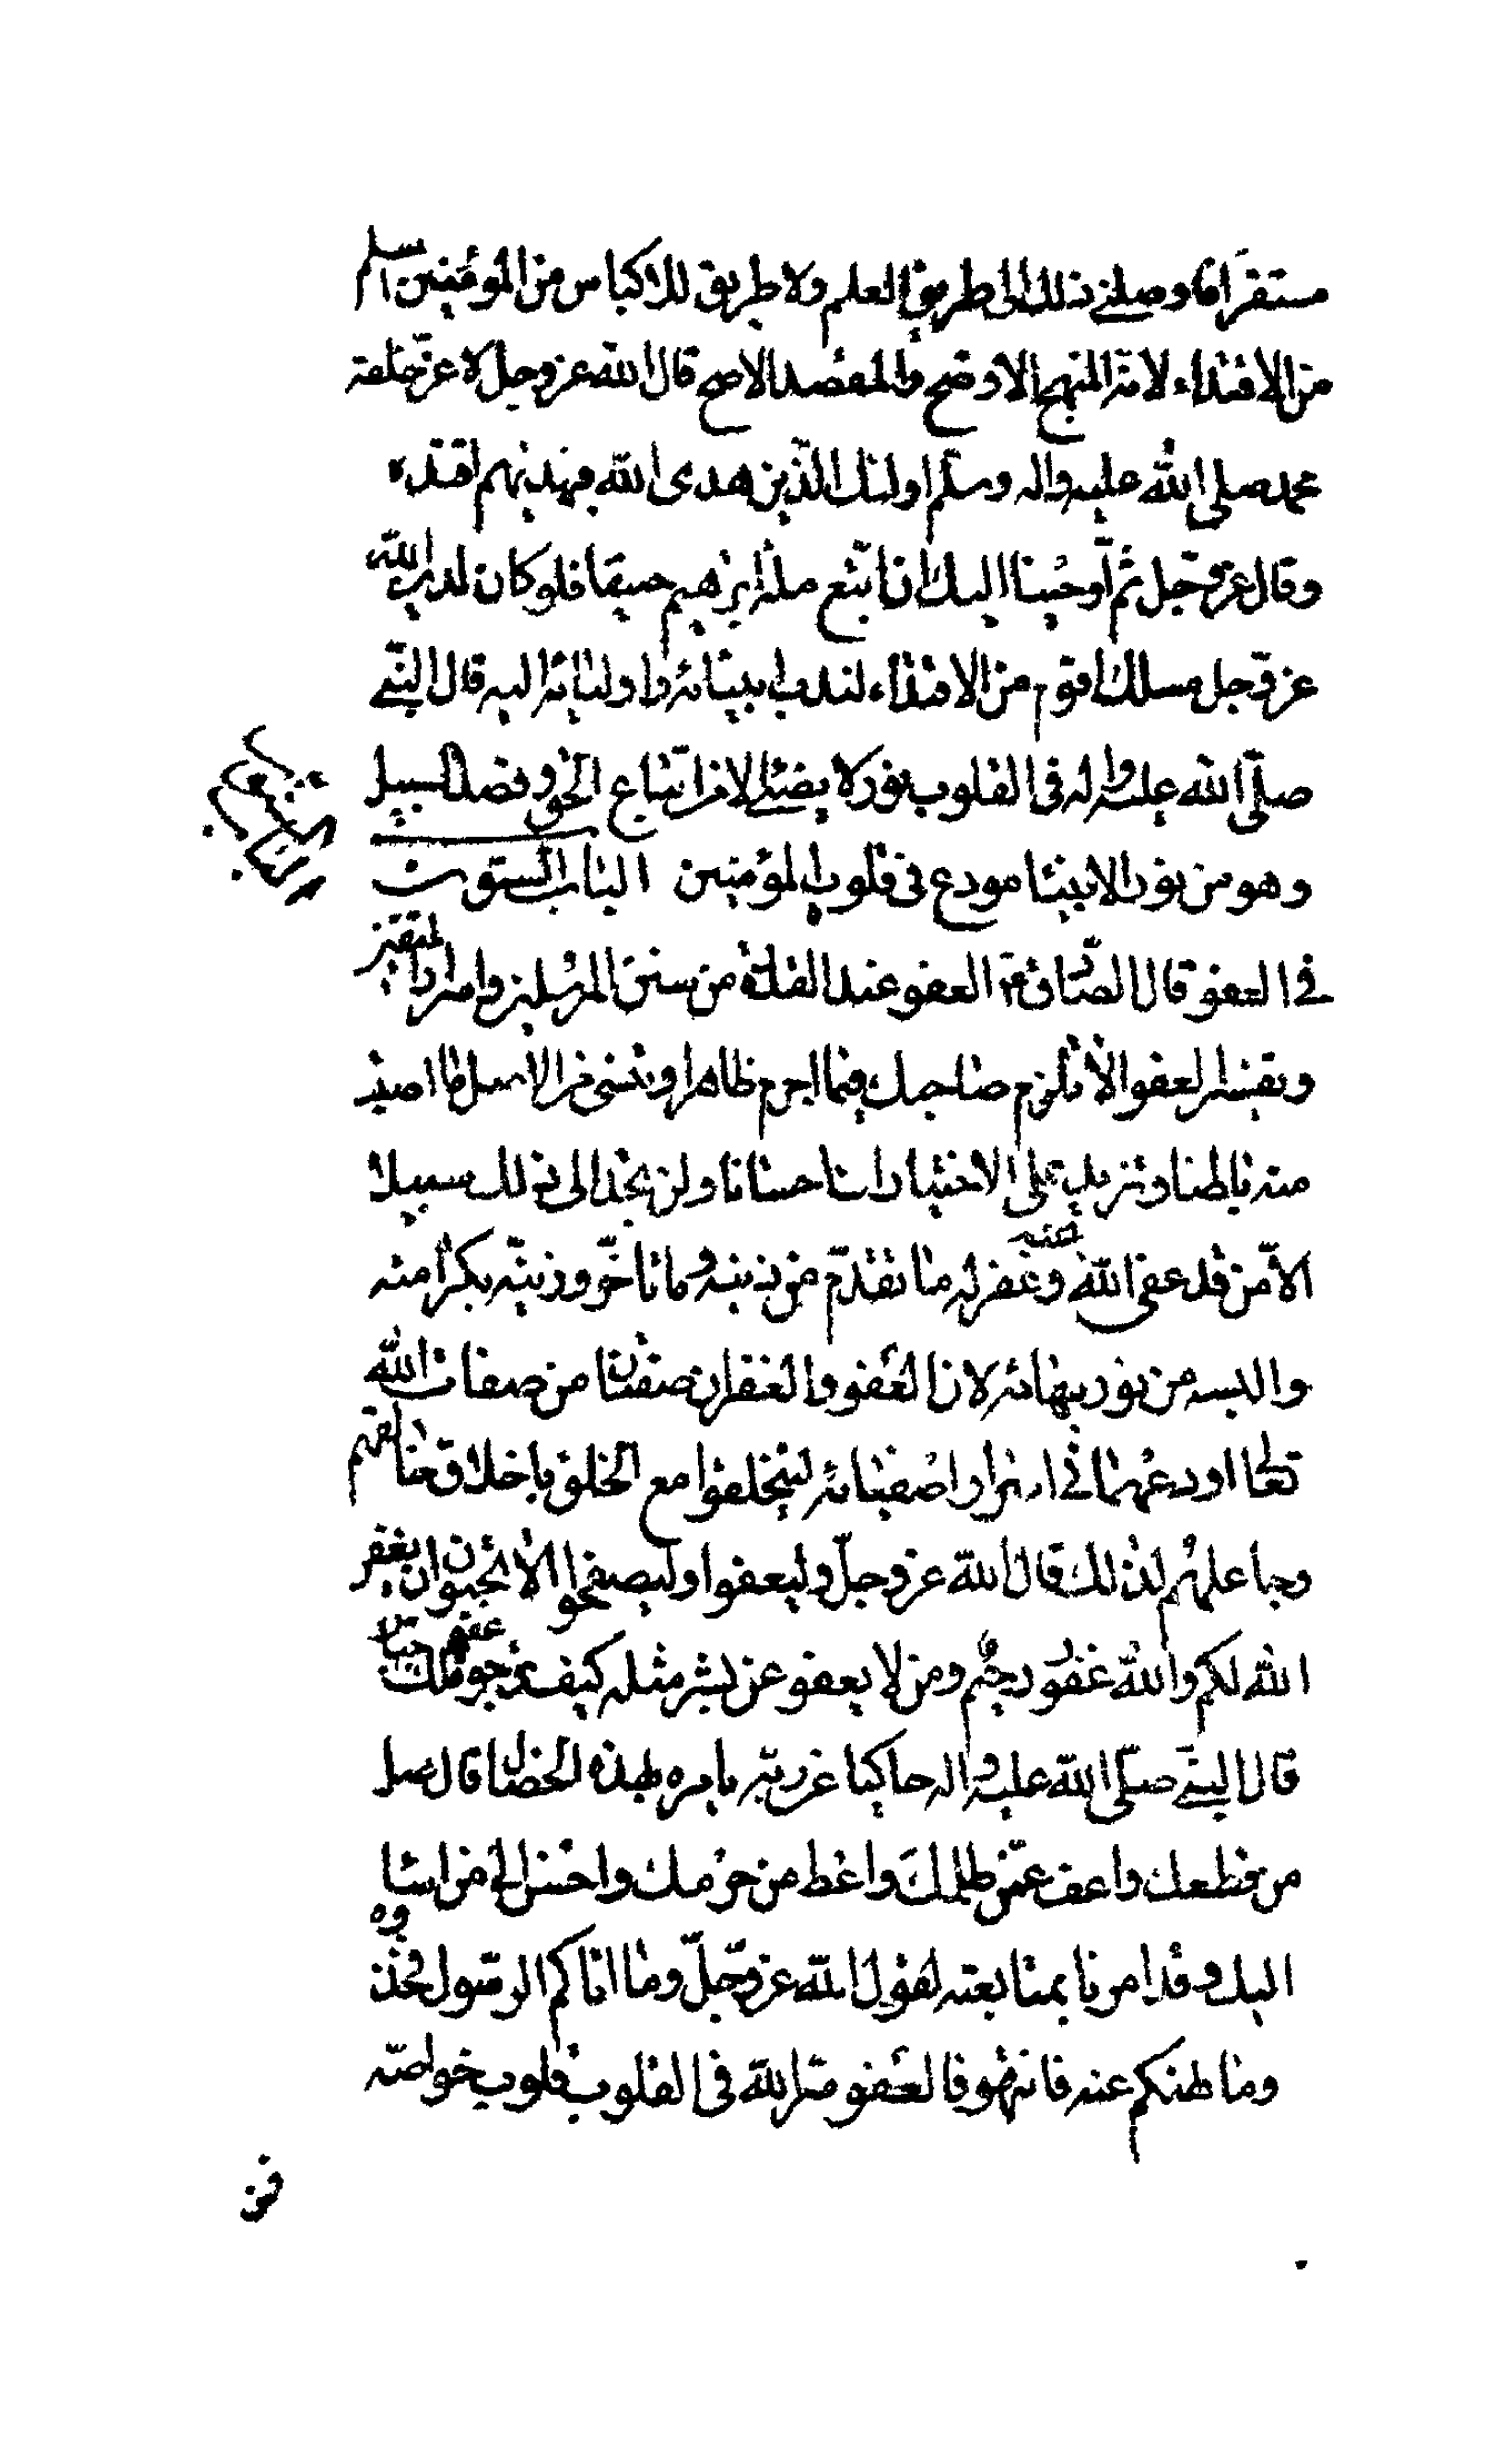 مستقرا فاوصلني ذلك الى طريق العلم ولا طريق للاكياس من المؤمنين اسلم
من الاقتداء لانه المنهج الاوضح والمقصد الاصح قال الله عز وجل لاعز خلقه
محمد صلى الله عليه واله وسلم اولئك الذين هدى الله فبهديهم اقتده
وقال عز وجل ثم اوحينا اليك ان اتبع ملة ابرهيم حنيفا فلو كان لدين الله
عز وجل مسلك اقوم من الاقتداء لندب انبيائه واوليائه اليه قال النبي
صلى الله عليه واله في القلوب نور لا يضئ الا من اتباع الحق وقصد السبيل
وهو من نور الانبيا مودع في قلوب المؤمنين الباب الستون
في العفو قال الصادق ع العفو عند القدرة من سنن المرسلين واسرار المتقين
وتفسير العفو الا تلزم صاحبك فيما اجرم ظاهرا وتنسى من الاصل ما اصيب
منه باطنا وتزيد على الاختيارات احسانا ولن يجد الى ذلك سبيلا
الا من قد عفى الله عنه وغفر له ما تقدم من ذنبه وما تاخر وزينه بكرامته
والبسه من نور بهائه لان العفو والغفران صفتان من صفات الله
تعالى اودعهما في اسرار اصفيائه ليتخلقوا مع الخلق باخلاق خالقهم
وجاعلهم لذلك قال الله عز وجل وليعفوا وليصفحوا الا تحبون ان يغفر
الله لكم والله غفور رحيم ومن لا يعفو عن بشر مثله كيف يرجو عفو ملك جبار
قال النبي صلى الله عليه واله حاكيا عن ربه يامره بهذه الخصال قال صل
من قطعك واعف عمن ظلمك واعط من حرمك واحسن الى من اساء
اليك وقد امرنا بمتابعته لقول الله عز وجل وما اتاكم الرسول فخذوه
وما نهيكم عنه فانتهوا فالعفو سر الله في القلوب قلوب خواصه
فمن